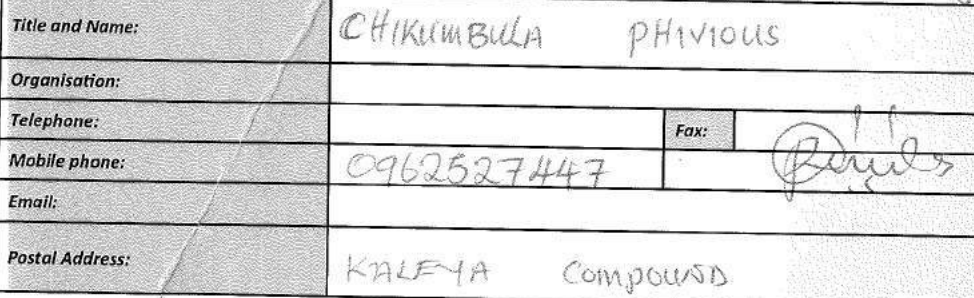 Title and Name: CHIKUMBULA PHIVIOUS
Organisation:
Telephone: Fax:
Mobile phone: 0962527447
Email:
Postal Address: KALEYA COMPOUND